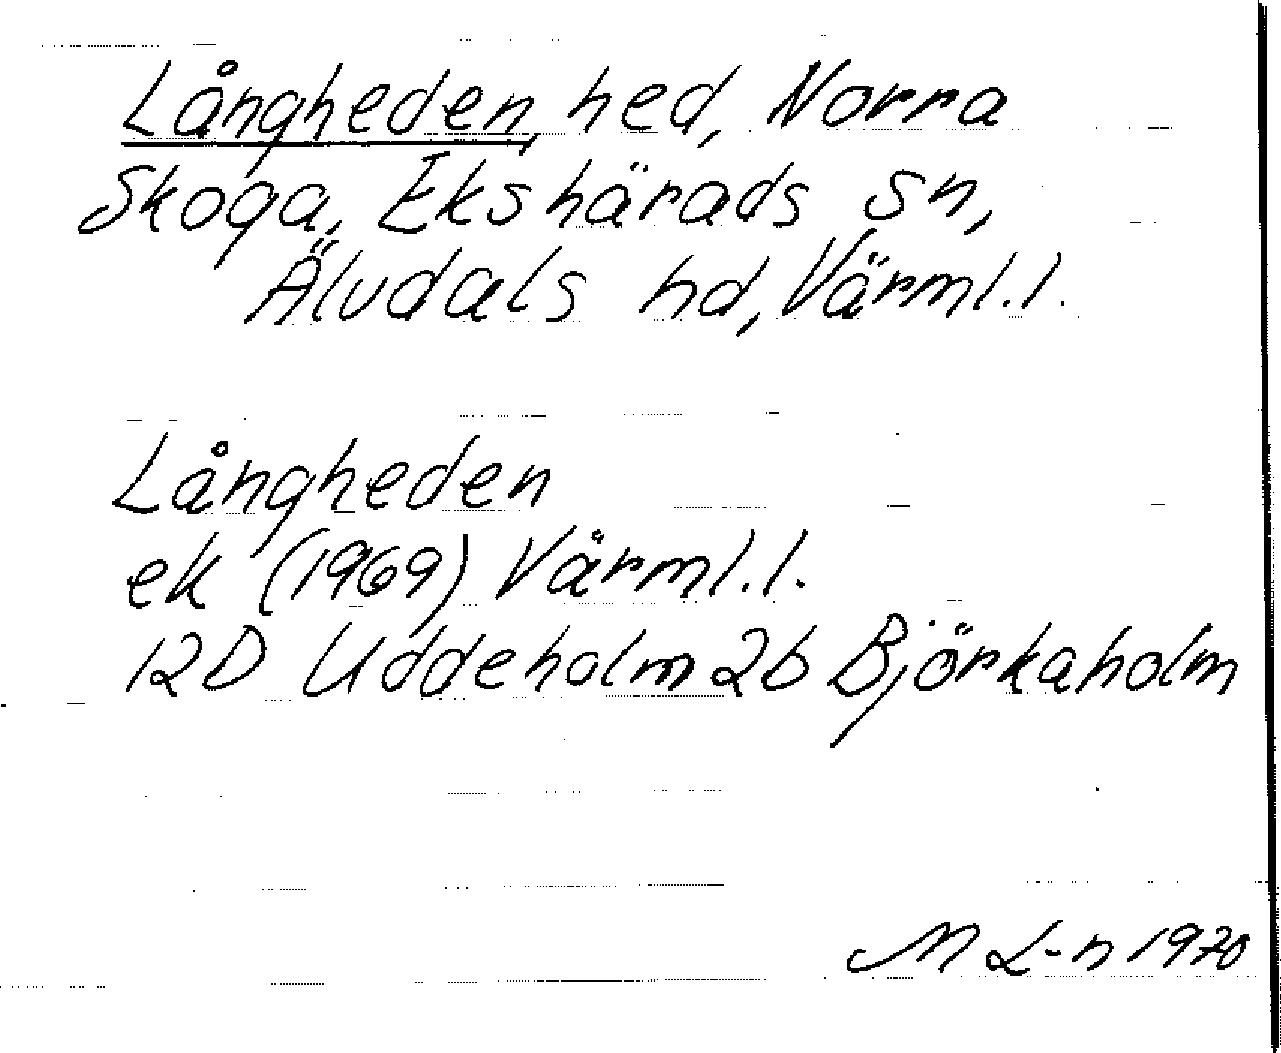 Långheden, hed, Norra
Skoga, Ekshärads sn,
Älvdals hd, Värml. l.
Långheden
ek (1969) Värml. l.
12D Uddeholm 2b Björkaholm
M L-n 1970